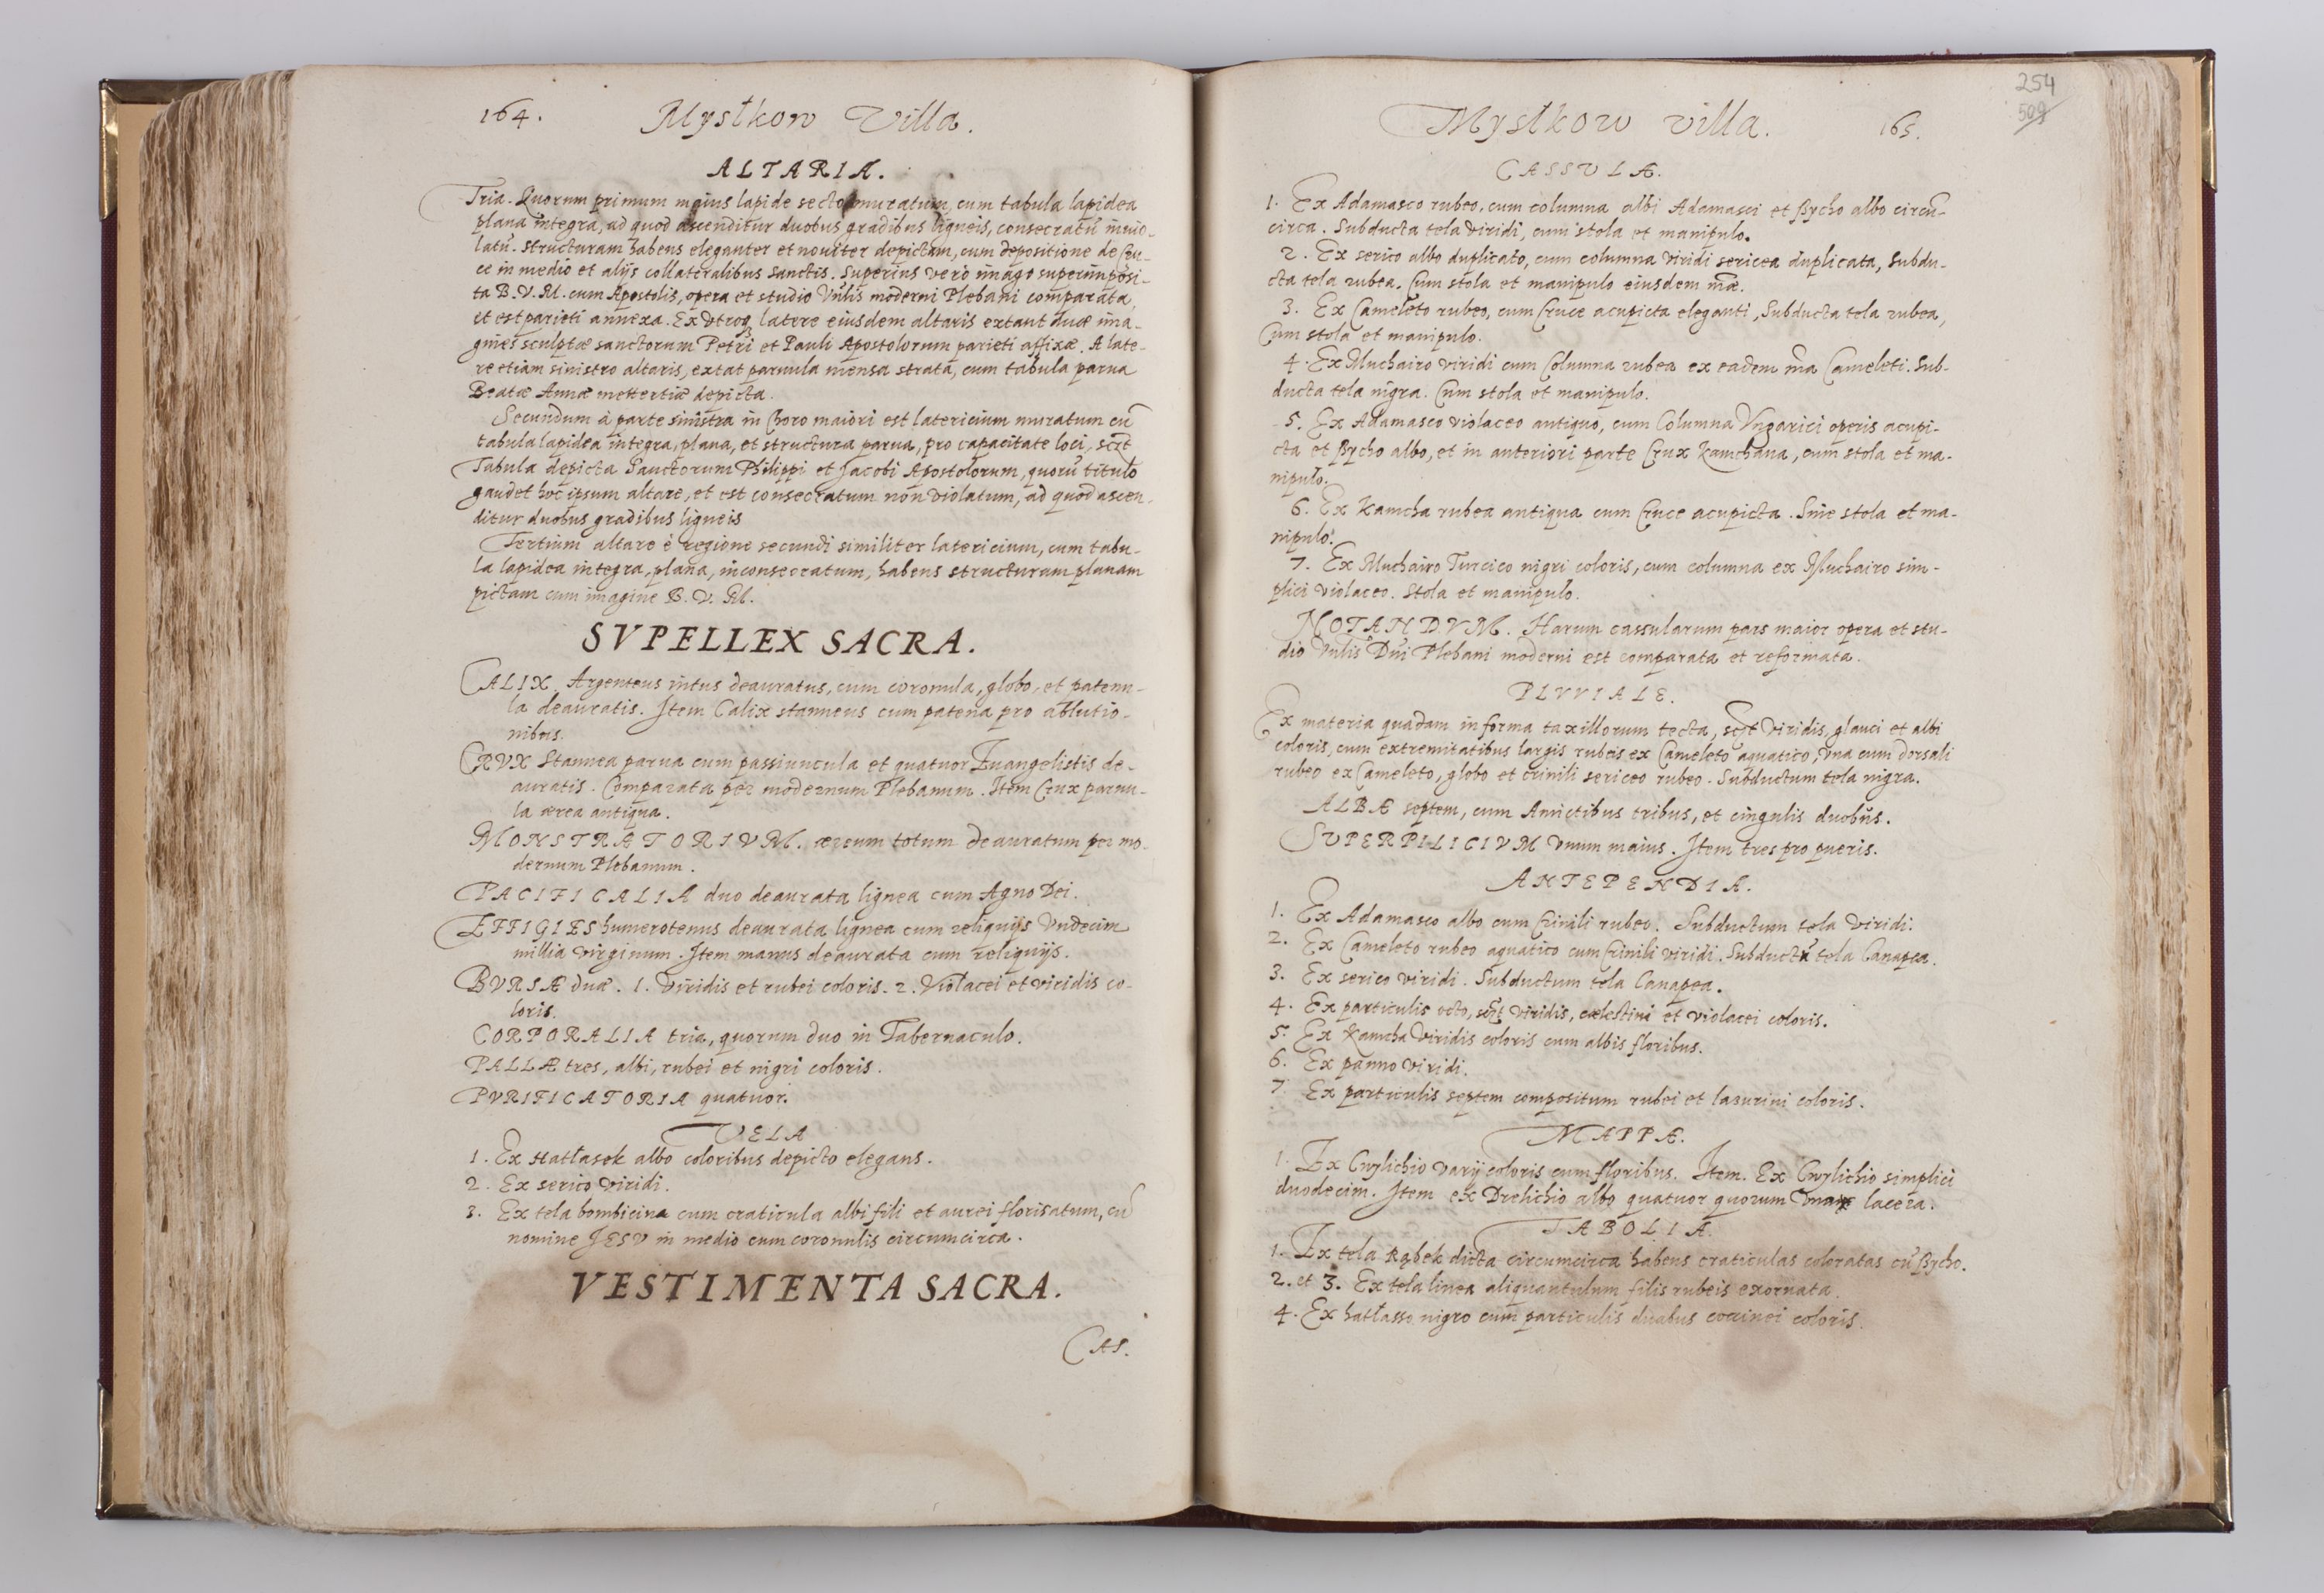 164.
Mystkow Villa.
ALTARIA.
Tria. Quorum primum maius lapide secto muratum, cum tabula lapidea
plana integra, ad quod ascenditur duobus gradibus ligneis, consecratũ inuio-
latũ. Structuram habens eleganter et nouiter depictam, cum depositione de Cru-
ce in medio et alijs collateralibus Sanctis. Superius verò imago superimposi-
ta B. V. M. cum Apostolis, opera et studio Vnlis moderni Plebani comparata,
et est parieti annexa. Ex vtroq latere eiusdem altaris extant duæ ima-
gines sculptæ sanctorum Petri et Pauli Apostolorum parieti affixæ. A late-
re etiam sinistro altaris, extat paruula mensa strata, cum tabula parua
Beatæ Annæ mettertiæ depicta.
Secundum à parte sinistra in Choro maiori est latericium muratum cũ
tabula lapidea integra, plana, et structura parua, pro capacitate loci, sct
Tabula depicta Sanctorum Philippi et Jacobi Apostolorum, quorũ titulo
gaudet hoc ipsum altare, et est consecratum non violatum, ad quod ascen-
ditur duobus gradibus ligneis
Tertium altare è regione secundi similiter latericium, cum tabu-
la lapidea integra, plana, inconsecratum, habens structuram planam
pictam cum imagine B. V. M.
SVPELLEX SACRA.
CALIX. Argenteus intus deauratus, cum coronula, globo, et patenu-
la deauratis. Item Calix stanneus cum patena pro ablutio-
nibus.
CRVX Stannea parua cum passiuncula et quatuor Euangelistis de-
auratis. Comparata per modernum Plebanum. Item Crux paruu-
la ærea antiqua.
MONSTRATORIVM. æreum totum deauratum per mo-
dernum Plebanum.
PACIFICALIA duo deaurata lignea cum Agno Dei.
EFFIGIES humerotenus deaurata lignea cum reliquijs Vndecim
millia virginum. Item manus deaurata cum reliquijs.
BVRSÆ duæ. 1. Viridis et rubei coloris. 2. Violacei et viridis co-
loris.
CORPORALIA tria, quorum duo in Tabernaculo.
PALLÆ tres, albi, rubei et nigri coloris.
PVRIFICATORIA quatuor.
VELA
1. Ex Hatłasek albo coloribus depicto elegans.
2. Ex serico viridi.
3. Ex tela bombicina cum craticula albi fili et aurei florisatum, cũ
nomine JESV in medio cum coronulis circumcirca.
VESTIMENTA SACRA.
CAS.
254
509
Mystkow villa.
165.
CASSVLÆ.
1. Ex Adamasco rubeo, cum columna albi Adamasci et Bycho albo circũ-
circa. Subducta tela viridi, cum stola et manipulo.
2. Ex serico albo duplicato, cum columna viridi sericea duplicata, Subdu-
cta tela rubea. Cum stola et manipulo eiusdem mæ.
3. Ex Cameleto rubeo, cum Cruce acupicta eleganti, Subducta tela rubea,
Cum stola et manipulo.
4. Ex Muchairo viridi cum Columna rubea ex eadem ma Cameleti. Sub-
ducta tela nigra. Cum stola et manipulo.
5. Ex Adamasco violaceo antiquo, cum Columna Vngarici operis acupi-
cta et Bycho albo, et in anteriori parte Crux Kamchana, cum stola et ma-
nipulo.
6. Ex Kamcha rubea antiqua cum Cruce acupicta. Sine stola et ma-
nipulo.
7. Ex Muchairo Turcico nigri coloris, cum columna ex Muchairo sim-
plici violaceo. Stola et manipulo.
NOTANDVM. Harum cassularum pars maior opera et stu-
dio Vnlis Dni Plebani moderni est comparata et reformata.
PLVVIALE.
Ex materia quadam in forma taxillorum tecta, sct viridis, glauci et albi
coloris, cum extremitatibus largis rubeis ex Cameleto aquatico, vna cum dorsali
rubeo ex Cameleto, globo et crinili sericeo rubeo. Subductum tela nigra.
ALBÆ septem, cum Amictibus tribus, et cingulis duobus.
SVPERPILICIVM Vnum maius. Item tres pro pueris.
ANTEPENDIA.
1. Ex Adamasco albo cum Crinili rubeo. Subductum tela viridi.
2. Ex Cameleto rubeo aquatico cum Crinili viridi. Subductũ tela Canapea.
3. Ex serico viridi. Subductum tela Canapea.
4. Ex particulis octo, sct viridis, cælestini et violacei coloris.
5. Ex Kamcha viridis coloris cum albis floribus.
6. Ex panno viridi.
7. Ex particulis septem compositum rubei et lasurini coloris.
MAPPÆ.
1. Ex Cwylichio varij coloris cum floribus. Item. Ex Cwylichio simplici
duodecim. Item ex Drelichio albo quatuor quorum vna lacera.
TABOLIA.
1. Ex tela Rąbek dicta circumcirca habens craticulas coloratas cũ Bycho.
2. et 3. Ex tela linea aliquantulum filis rubeis exornata.
4. Ex hatłasso nigro cum particulis duabus coccinei coloris.